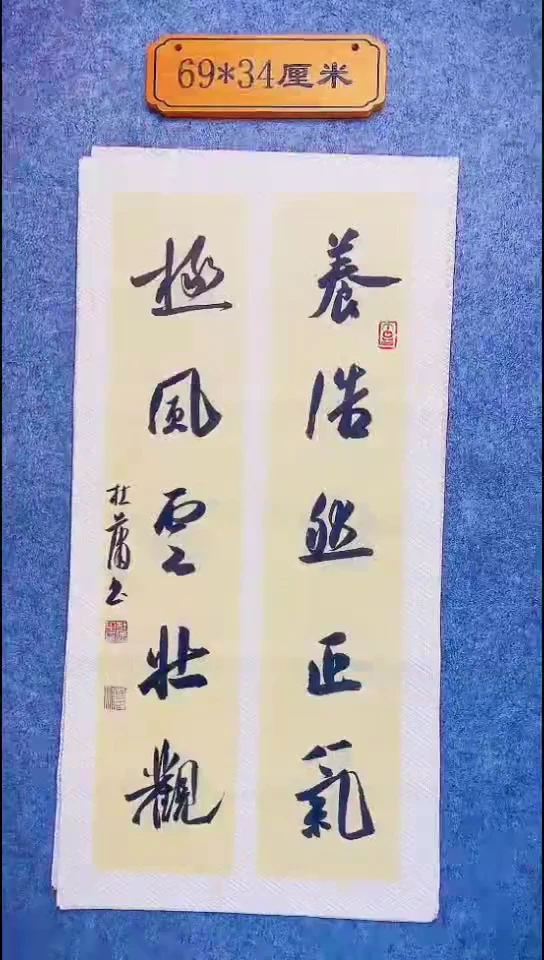 69*34厘米
養浩然正氣
極風雲壯觀